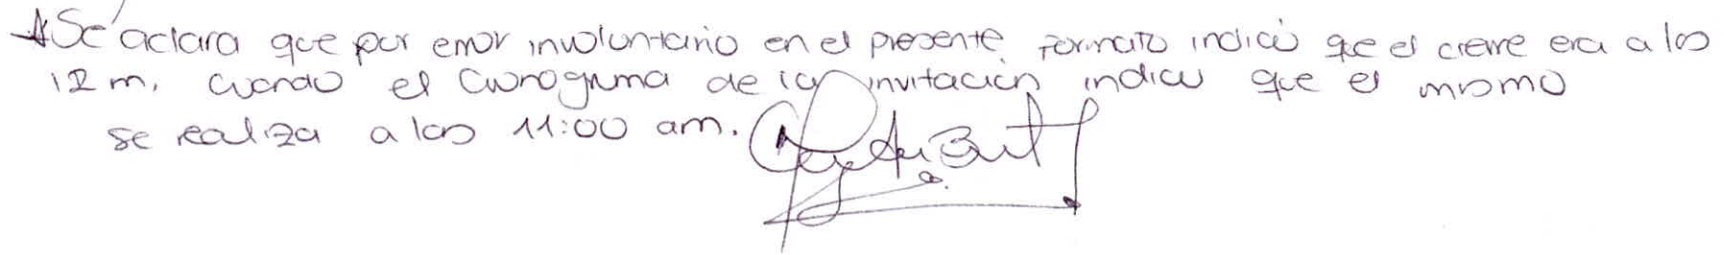 *Se aclara que por error involuntario en el presente formato indicó que el cierre era a las
12 m. cuando el cronograma de la invitación indica que el mismo
se realiza a las 11:00 am.